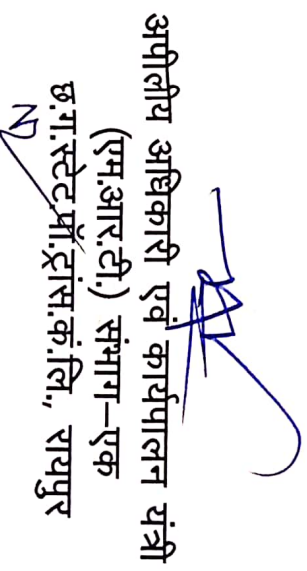 अपीलीय अधिकारी एवं कार्यपालन यंत्री
(एम.आर.टी.) संभाग–एक
छ.ग.स्टेट पॉ.ट्रांस.कं.लि., रायपुर